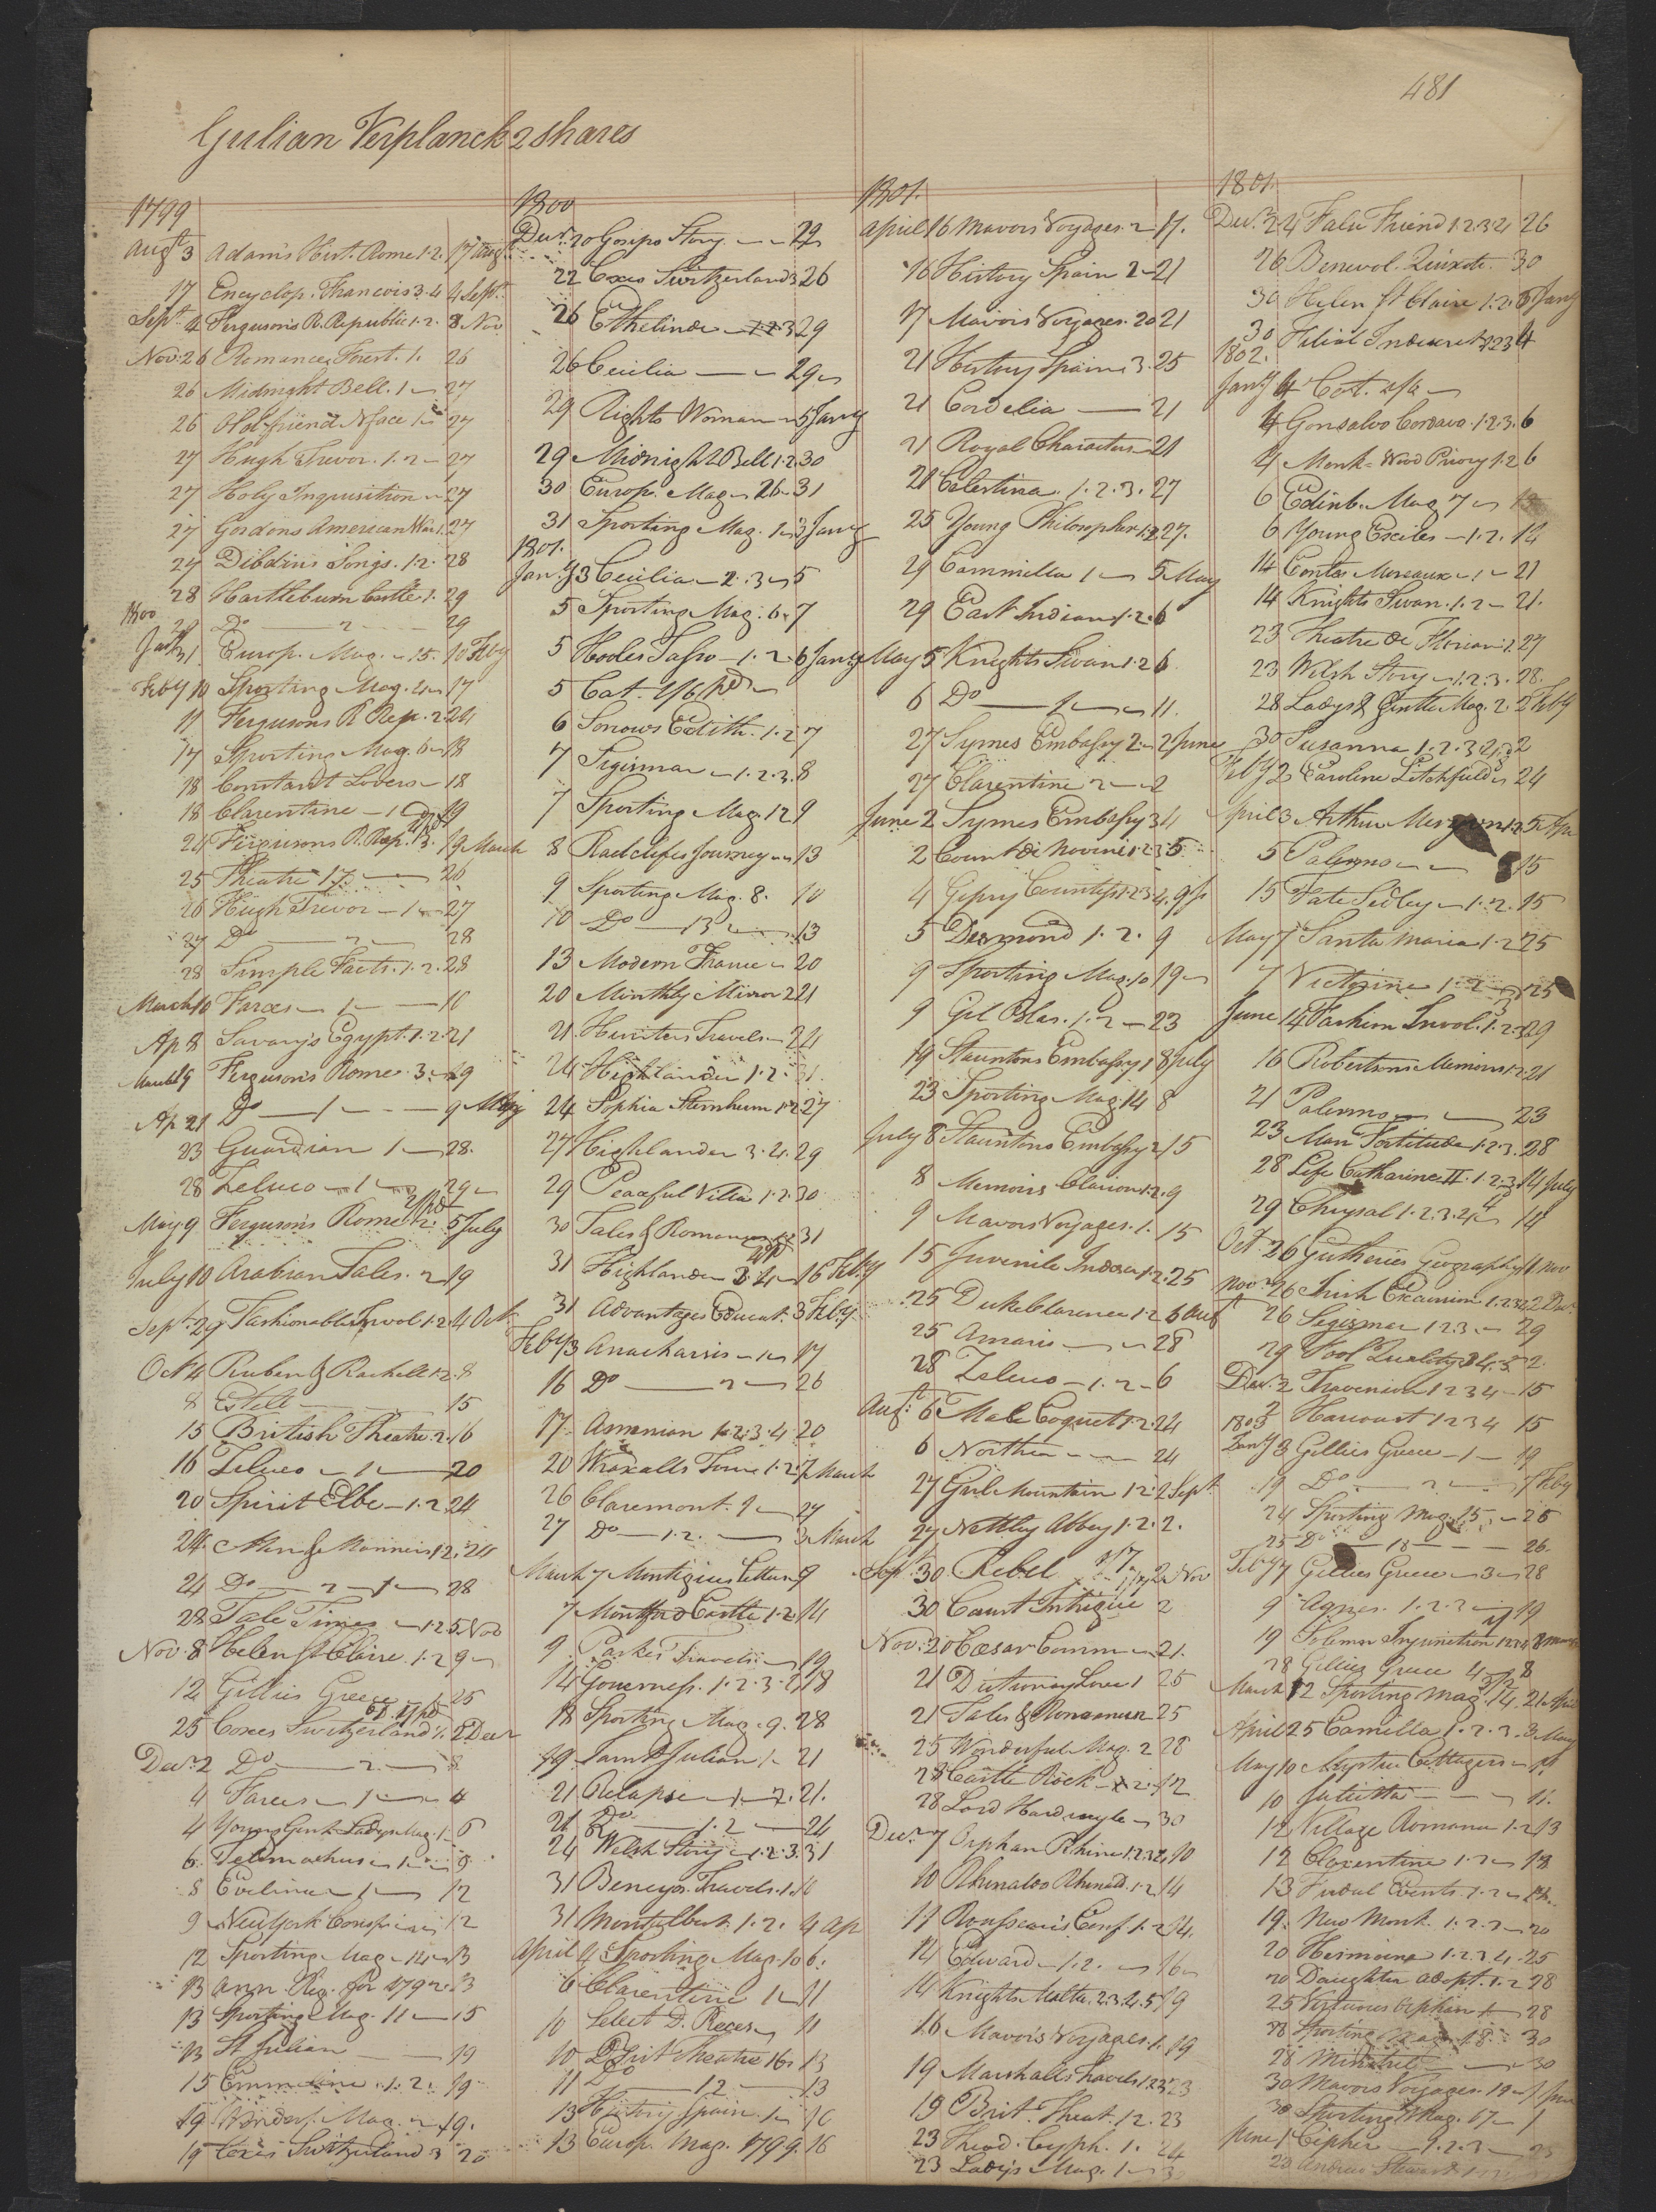 481
Gulian Verplanck 2 shares
1799
Augt 3 Adams Hist. Rome 1.2. 17 Augt
17 Encyclop. Francois 3.4 4 Sept.
Sept. 4 Fergusons R. Republic 1.2. 8. Nov
Nov. 26 Romance Forest. 1. 26
26 Midnight Bell. 1 27
26 Old friend N face 1 27
27 Hugh Trevor. 1.2 27
27 Holy Inquisition 27
27 Gordons American War 1. 27
27 Dibdins Songs. 1.2. 28
28 Hartlebourn Castle 1. 29
1800
Do 2 29
Europ. Mag. 15. 10 Feby
Feby 10 Sporting Mag. 4 17
11 Fergusons R Rep. 2 24
17 Sporting Mag. 6 18
18 Constant Lovers 18
18 Clarentine 1 19
24 Fergusons R. Rep. 3. 19 March
25 Theatre 17. 26
26 Hugh Trevor 1 27
27 Do 2 28
28 Simple Facts. 1.2. 28
March 10 Farces 1 10
Ap 8 Savary's Egypt. 1.2. 21
March 19 Ferguson's Rome. 3. 19
Ap 21 Do 1 9 May
23 Guardian 1 28.
28 Zeluco 1 29
May 9 Ferguson's Rome. 2. 5 July
July 10 Arabian Tales. 2 19
Sept. 29 Fashionable Invol. 1.2 4 Oct
Oct 4 Ruben & Rachell 1.2. 8
8 Estell 15
15 British Theatre. 2. 16
16 Zeluco 1 20
20 Spirit Elbe 1.2 24
24. Men & Manners 1.2. 24
24 Do 28
28 Tale Times 1.2 5 Nov
Nov. 8 Helen St Claire. 1.2 9
12 Gillies Greece 1 25
25 Coxes Switzerland 1. 2 Decr
Decr 2 Do 2. 8
4 Farces 1 4
4 Young Gent. Ladys Mag. 1 6
6. Telemachus 1 8
8 Evelina 1 12
9 NewYork Conspiracy 12
12 Sporting Mag. 14 13
13 Ann Reg. for 1792. 13
13 Sporting Mag. 11 15
13 St Julian 19
15 Emmeline. 1.2. 19
19 Wonderf. Mag. 2 19.
19 Coxes Switzerland 3 20
1800
Decr. 20 Gosips Story 22
22 Coxes Switzerland 3 26
26 Ethelinde 1.2.3 29
26 Cecilia 29
29 Rights Woman 5 Jany
29 Midnight Bell 1.2. 30
30 Europ. Mag. 26 31
31 Sporting Mag. 1 3 Jany
1801.
Jany 3 Cecilia 2.3 5
5 Sporting Mag. 6 7
5 Hooles Tasso 1.2. 6 Jany
5 Cat. 1/6 pd
6 Sorrows Edith. 1.2 7
7 Sigismar 1.2.3. 8
7 Sporting Mag. 12 9
8 Radclifes Journey 13
9 Sporting Mag. 8. 10
10 Do 13 13
13 Modern France 20
20 Monthly Mirror 2 21
21 Hunters Travels 24
24 Highlander 1.2. 31.
24 Sophia Sternheim 1.2. 27
27 Highlander 3.4. 29
29 Peaceful Villa 1.2. 30
30 Tales & Romances 1.2 31
31 Highlander 3.4 16 Feby
31 Advantages Educat. 3 Feby
Feby 3 Anacharsis 1 17
16 Do 2 26
17. Armenian 1.2.3.4. 20
20 Wraxalls Tour 1.2. 7 March
26 Claremont. 1 27
27 Do 1.2. 3 March
March 7 Montigius Letters 9
7 Montford Castle 1.2. 14
9 Parkes Travels 19
14 Governess. 1.2.3.4 18
18 Sporting Mag. 9. 28
19. Saint Julian 1 21
21 Relapse 1.2. 21.
21 Do 1.2 24
24 Welsh Story 1.2.3. 31
31 Benyos. Travels. 1.
31 Montalbert. 1.2. 4 Ap
April 4 Sporting Mag. 10 6.
6 Clarentine 1 11
10 Select D. Reces 11
10 Brit Theatre 16 13
11 Do 12 13
13 History Spain. 1 16
13 Europ. Mag. 1799. 16
1801.
April 16 Mavors Voyages. 2 17.
16 History Spain 2 21
17 Mavors Voyages. 20 21
21 History Spain 3. 25
21 Cordelia 21
21 Royal Characters 21
21 Celestina. 1.2.3. 27
25 Young Philosopher 1.2 27.
29 Cammilla 1 5 May
29 East Indian 1.2. 6
May 5 Knights Swan 1.2 6
6 Do 11.
27 Symes Embassy 2. 2 June
27 Clarentine 2 2
June 2 Symes Embassy 3 4
2 Count di Novini 1.2.3 5
4 Gipsy Countess 1.2.3.4. 9
5 Desmond 1.2. 9
9 Sporting Mag. 10 19
9 Gil Blas. 1.2 23
19 Stauntons Embassy 1 8 July
23 Sporting Mag. 14 8
July 8 Stauntons Embassy 2 15
8 Memoirs Clarion 1.2. 9
9 Mavors Voyages. 1. 15
15 Juvenile Indes 1.2. 25
25 Duke Clarence 1.2 6 Augt
25 Amaris 28
28 Zeluco 1.2 6
Augt. 6 Male Coquet 1.2. 24
6 Norther 24
27 Girl Mountain 1.2. 2 Sept.
27 Nettley Abbey 1.2. 2.
Sept. 30 Rebel 2 Nov
30 Court Intrigue 2
Nov. 20 Cæsar Comm 21.
21 Dictionary Love 1 25
21 Tales & Romances 25
25 Wonderful Mag. 2 28
28 Castle Rock 1.2. 12
28 Lord Hardivyle 30
Decr 7 Orphan Rhine 1.2.3.4 10
10 Rhinaldo Rhinald. 1.2. 14
11 Rousseau's Conf 1.2 14.
14 Edward 1.2. 16
14 Knights Malta. 2.3.4.5 19
16 Mavors Voyages. 1. 19
19 Marshalls Travels 1.2.3. 23
19 Brit. Theat. 12. 23
23 Theod. Cyph. 1. 24
23 Lady's Mag. 1
1801.
Decr. 24 False Friend 1.2.3.4 26
26 Benevol. Quixote. 30
30 Helen St Claire 1.2. 5 Jany
30 Filial Indiscret 1.2.3 4
1802.
Jany 4 Cat. 2/6
4 Gonsalvo Cordova. 1.2.3. 6
4 Monk Wood Priory 1.2 6
6 Edinb. Mag. 7
6 Young Exiles 1.2. 14
14 Contes Moreaux 1 21
14 Knights Swan. 1.2 21.
23 Theatre de Florian 1.2. 27
23 Welsh Story 1.2.3. 28.
28 Ladys & Gentle Mag. 2. 2 Feby
30 Susanna 1.2.3.4 2
Feby 2 Caroline Litchfield 24
April 3 Arthur 5 Apr
5 Palermo 15
15 Fate Sedley 1.2. 15
May 7 Santa Maria 1.2 25
7 Victorine 1.2 25
June 14 Fashion Invol. 1.2.3 29
16 Robertsons Memoirs 1.2. 21
21 Palermo 23
23 Man Fortitude 1.2.3. 28
28 Life Catharine II. 1.2.3. 14 July
29 Chrysal 1.2.3.4 14
Oct. 26 Gutheries Geography 11 Nov
Nov. 26 Irish Excursion 1.2.3. 22 Decr.
26 Segismar 1 2 3. 29
29 Fool Quality 3.4.5 2.
Decr. 2 Thavenion 1 2 3 4 15
2 Harcourt 1 2 3 4 15
1803
Jany 3 Gillies Greece 1 19
19 Do 2 7 Feby
24 Sporting Mag. 15 25
25 Do 18 26.
Feby 7 Gillies Greece 3 28
9 Agnes. 1.2.3 19
19 Solemn Injunction 1.2.3.4
28 Gillies Greece 4 8
March 12 Sporting Mag. 14. 21 April
April 25 Camilla 1.2.3. 3 May
May 10 Mystic Cottagers
10 Julietta 11.
12 Village Romance 1.2 13
12 Clarentine 1.2
13 Feudal Events. 1.2
19. New Monk. 1.2.3 20
20 Hermione 1.2.3.4. 25
20 Daughter Adopt. 1.2 28
25 Virtuous Orphan 28
28 Sporting Mag. 18. 30
28 Minstrel 30
30 Mavors Voyages. 19 1 June
30 Sporting Mag. 17 1
June 1 Cipher 1.2.3
20 Andrew Stewart